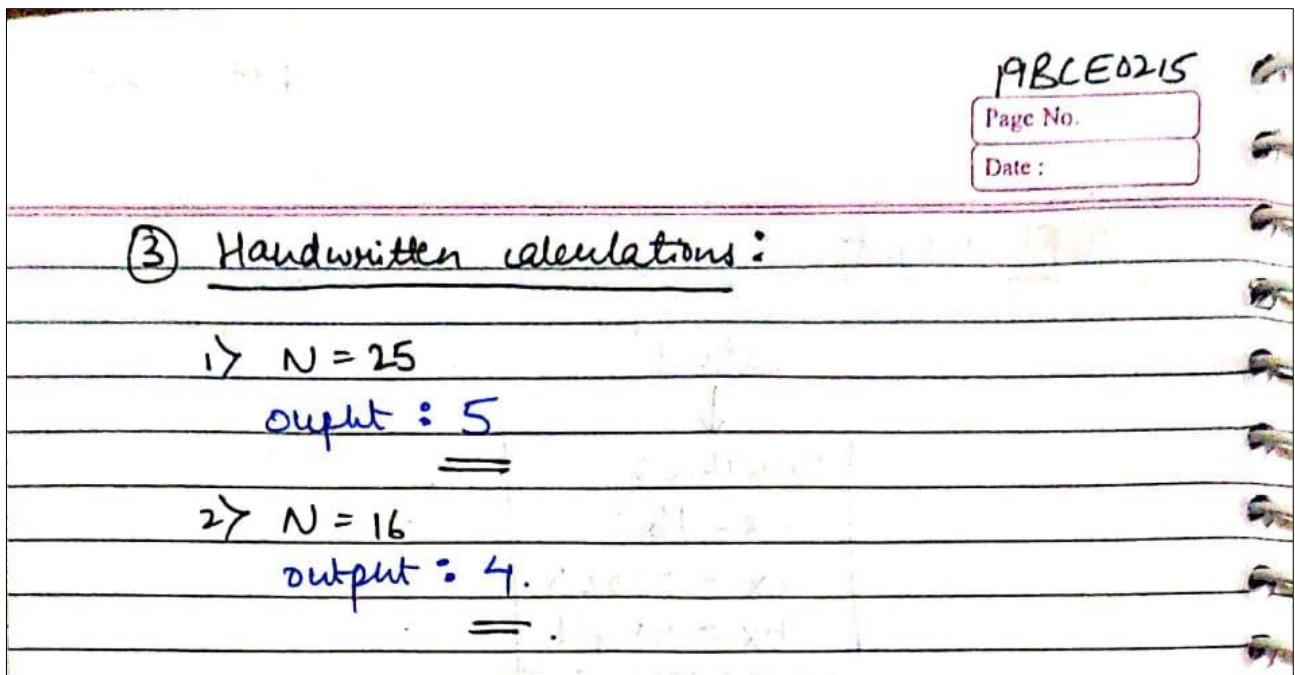 19BCE0215
Page No.
Date :
3 Handwritten calculations :
1> N = 25
ouput : 5
2> N = 16
output : 4.